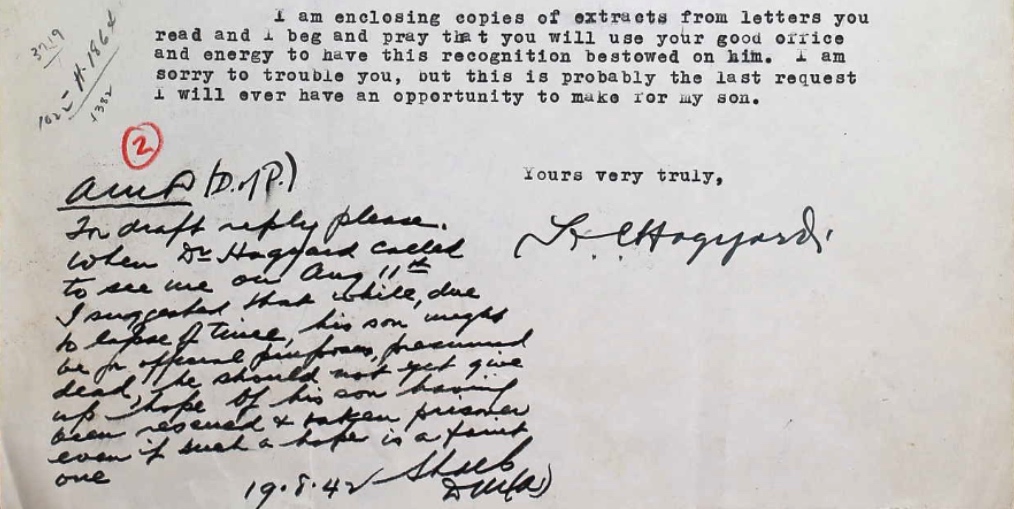 3719
1022-H-1864
1382
I am enclosing copies of extracts from letters you
read and I beg and pray that you will use your good office
and energy to have this recognition bestowed on him. I am
sorry to trouble you, but this is probably the last request
I will ever have an opportunity to make for my son.
Yours very truly,
Hagyard
2
AMP (D. of P.)
For draft reply please.
When Dr Hagyard called
to see me on Aug 11th
I suggested that while, due
to lapse of time, his son might
be for official purposes, presumed
dead, he should not yet give
up hope of his son having
been rescued & taken prisoner
even if such a hope is a faint
one
19.8.42